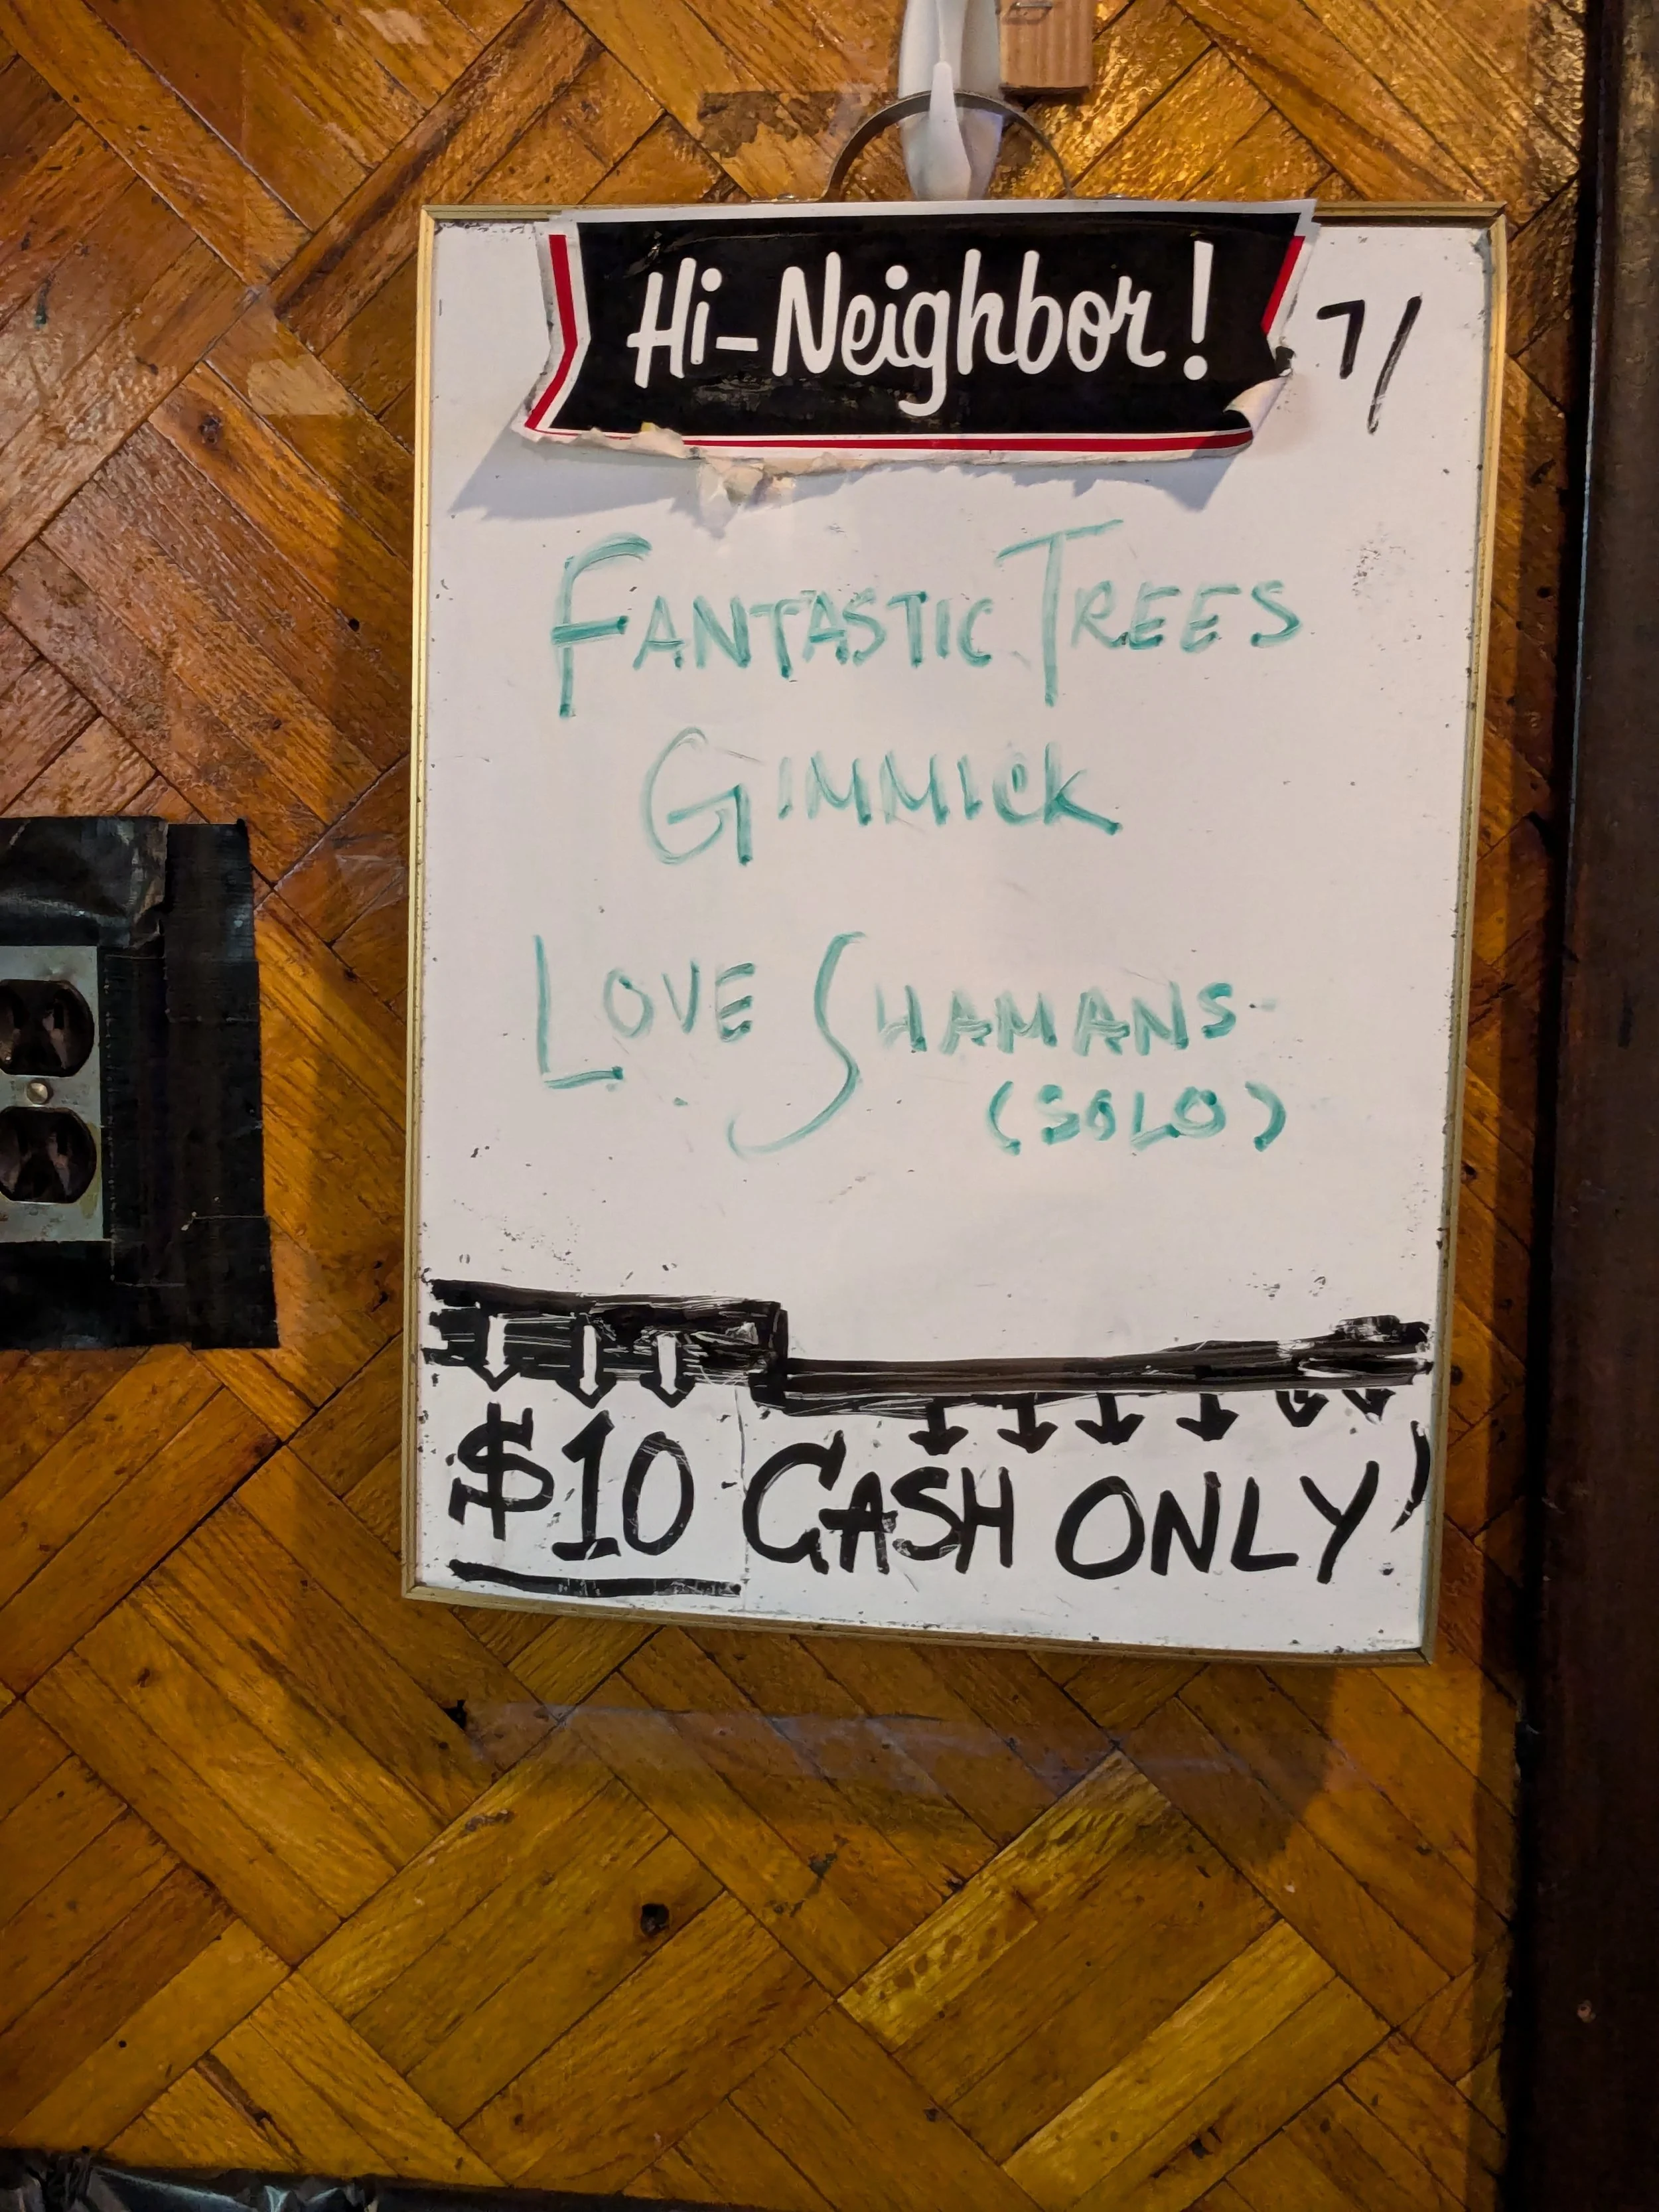 Hi-Neighbor!
7/
FANTASTIC TREES
GIMMICK
LOVE SHAMANS-
(SOLO)
$10 CASH ONLY!